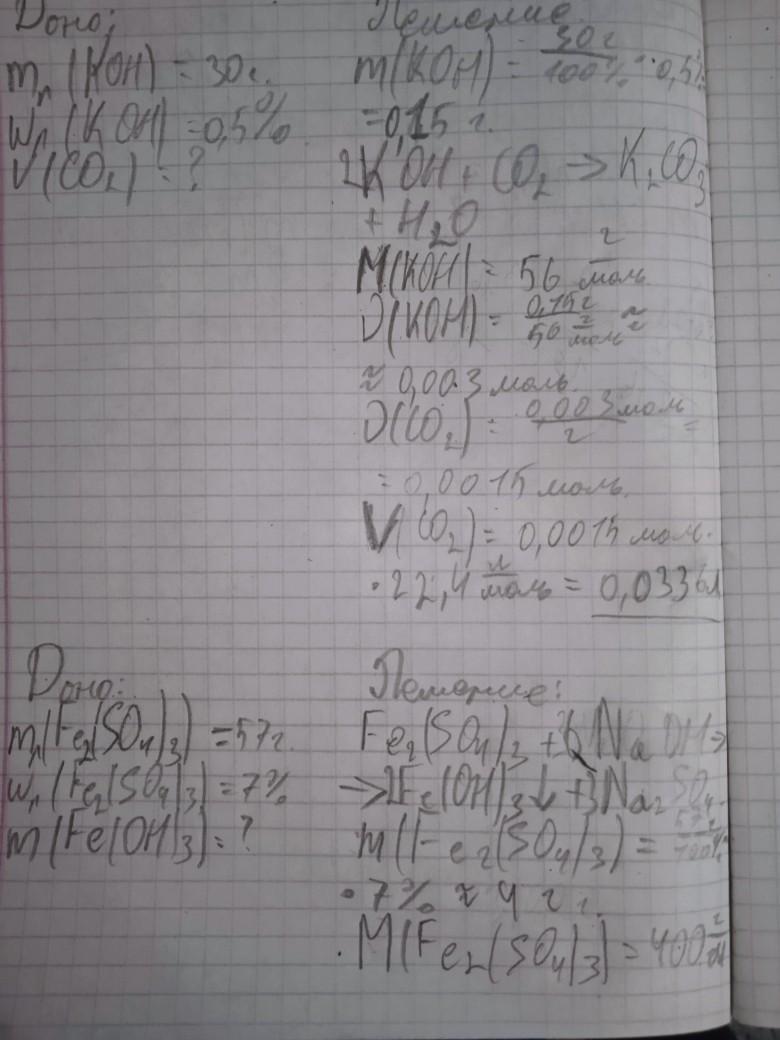 Дано:
m р (KOH) = 30 г.
w р (KOH) = 0,5%
V(CO2) = ?
Решение
m(KOH) = 30 г / 100% · 0,5%
= 0,15 г.
2KOH + CO2 → K2CO3
+ H2O
M(KOH) = 56 г/моль
ν(KOH) = 0,15 г / 56 г/моль ≈
≈ 0,003 моль.
ν(CO2) = 0,003 моль / 2 =
= 0,0015 моль.
V(CO2) = 0,0015 моль ·
· 22,4 л/моль = 0,0336 л
Дано:
m р (Fe2(SO4)3) = 57 г.
w р (Fe2(SO4)3) = 7%
m(Fe(OH)3) = ?
Решение:
Fe2(SO4)3 + 6NaOH →
→ 2Fe(OH)3↓ + 3Na2SO4.
m(Fe2(SO4)3) = 57 г / 100% ·
· 7% ≈ 4 г.
M(Fe2(SO4)3) = 400 г/моль